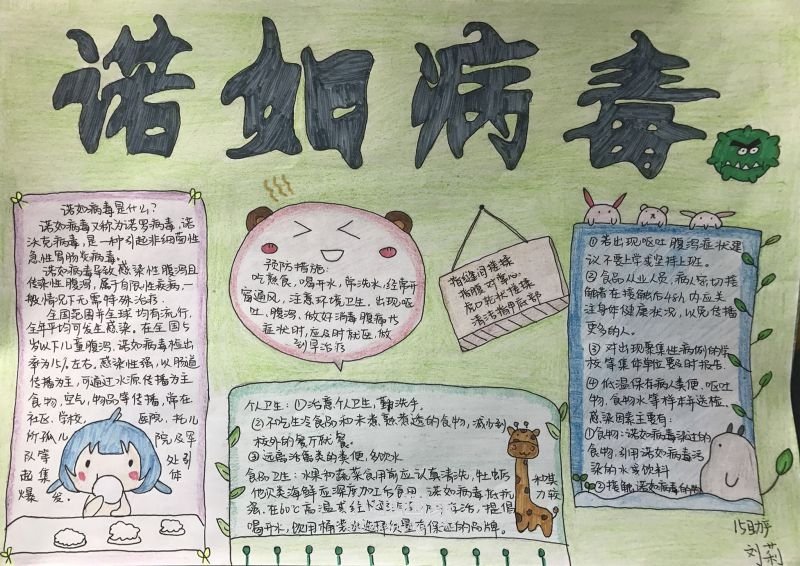 诺如病毒
诺如病毒是什么？
诺如病毒又称为诺罗病毒，诺
沃克病毒，是一种引起非细菌性
急性胃肠炎病毒。
诺如病毒导致感染性腹泻且
传染性腹泻，属于自限性疾病，一
般情况下无需特殊治疗.
全国范围乎全球均有流行，
全年平均可发生感染。在全国5
岁以下儿童腹泻，诺如病毒检出
率为15%左右，感染性强，以肠道
传播为主，可通过水源传播为主
食物，空气，物品等传播，常在
社区，学校，医院，托儿
所孤儿院及军
队等处引
起集体
爆发。
预防措施：
吃熟食，喝开水，常洗水，经常开
窗通风，注意环境卫生，出现呕
吐、腹泻、做好消毒腹痛也
症状时，应及时就医，做
到早治疗
指缝间搓揉
指腹对掌心
虎口
清洁指甲后部
个人卫生：①注意个人卫生，勤洗手。
②不吃生冷食品和未煮熟煮透的食物，减少到
校外的餐厅就餐。
③远离 患者的粪便，多饮水
食品卫生：水果和蔬菜食用前应认真清洗，牡蛎
他贝类海鲜应深度加工后食用，诺如病毒抵抗
力较
落，在60℃高温 存活，提倡
喝开水，饮用桶装水选择质量有保证的品牌。
①若出现呕吐腹泻症状建
议不要上学或坚持上班。
②食品从业人员，病人密切接
触者在接触后48h内应关
注身体健康状况，以免传播
更多的人。
③对出现聚集性病例的学
校等集体单位要及时报告.
④低温保存病人粪便、呕吐
物，食物水等样本并送检。
感染因素主要有：
①食物：诺如病毒染过的
食物，引用诺如病毒污
染的水或饮料
②接触：诺如病毒的
15助产
刘莉